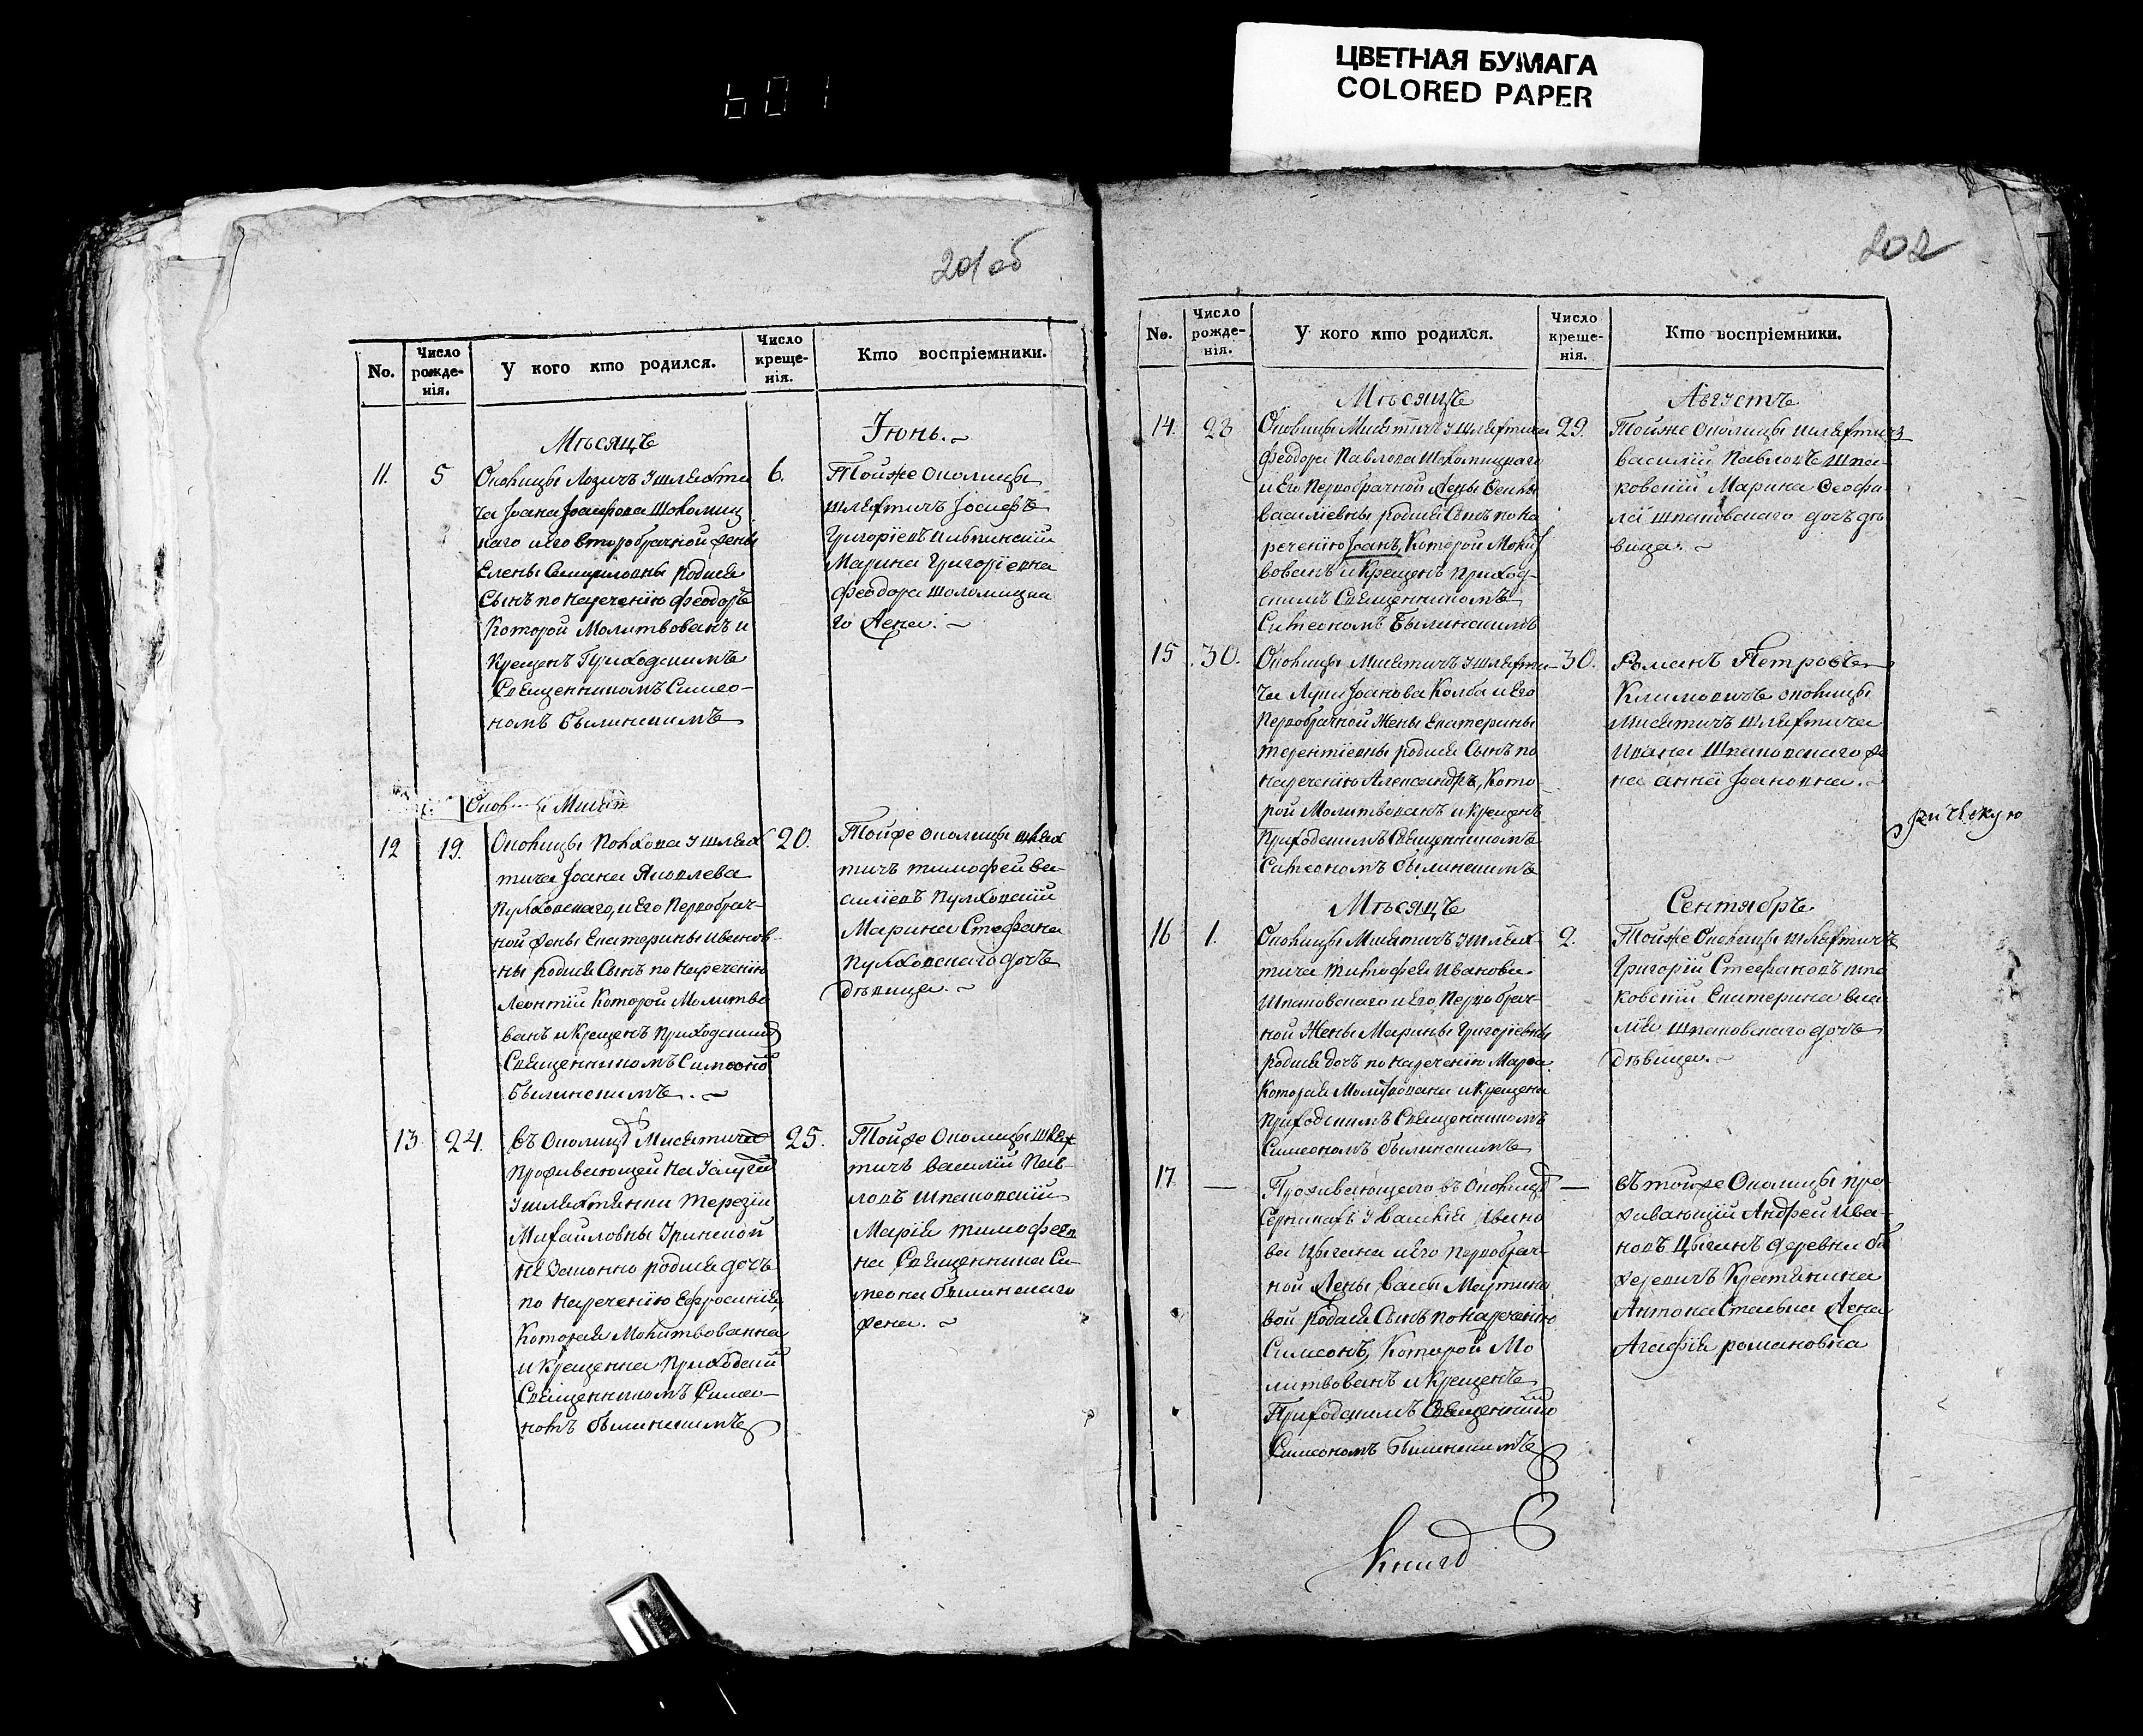 601
ЦВЕТНАЯ БУМАГА
COLORED PAPER
201 об
No.
Число рожденія.
У кого кто родился.
Число крещенія.
Кто воспріемники.
Мѣсяцъ
Іюнь.
11.
5
Околицы Лозичъ у шляхти
ча Іоана Іосифова Шоломиц
каго и его второбрачной жены
Елены родился
Сынъ по наречению Феодоръ
Которой Молитвованъ и
Крещенъ Приходскимъ
Священникомъ Симео-
номъ Былинскимъ
6.
Тойже околицы
шляхтичъ Іосифъ
Григоріевъ
Марина Григоріевна
Феодора Шоломицка
го Жена.
12
19.
Околицы у шлях
тича Іоана Яковлева
Пулховскаго, и Его Первобрач-
ной жены Екатерины Иванов-
ны родился Сынъ по наречению
Леонтій Которой Молитво
ванъ и Крещенъ Приходскимъ
Священникомъ Симеоно
Былинскимъ.
20.
Тойже околицы шлях
тичъ тимофей Ва-
силіевъ Пулховскій
Марина Стефана
Пулховскаго дочь
дѣвица.
13.
24.
Въ Околицѣ Мисятичахъ
Проживающей на
у шляхтянки Терезіи
Михайловны
не Законно родися дочь
по наречению Ефросинія,
Которая Молитвованна
и Крещенна Приходским
Священникомъ Симео-
номъ Былинскимъ
25.
Тойже Околицы шлях
тичъ Василій Пав-
ловъ Шпаковскій
Марія тимофеев
на Священника Си-
меона Былинскаго
жена.
202
No.
Число рожденія.
У кого кто родился.
Число крещенія.
Кто воспріемники.
Мѣсяцъ
Августъ
14.
28
Околицы Мисятичъ у шляхтича
Феодора Павлова Шоломицкаго
и Его Первобрачной Жены
Василіевны родися Сынъ по на
речению Іоанъ, Которой Молит
вованъ и Крещенъ Приход-
скимъ Священникомъ
Симеономъ Былинскимъ
29.
Тойже околицы шляхтичъ
Василій Павловъ Шпа-
ковскій Марина Феофи-
ла Шпаковскаго дочь дѣ
вица.
15
30.
Околицы Мисятичъ у шляхти-
ча Луки Іоанова Колба и Его
Первобрачной Жены Екатерины
терентіевны родися Сынъ по
наречению Александръ, Кото-
рой Молитвованъ и крещенъ
Приходскимъ Священникомъ
Симеономъ Былинскимъ
30.
Романъ Петровъ
Климовичъ околицы
Мисятичъ шляхтича
Ивана Шпаковскаго же
на Анна Іоановна.
Мѣсяцъ
Сентябръ
16
1.
Околицы Мисятичъ у шлях-
тича тимофея Иванова
Шпаковскаго и Его Первобрач-
ной Жены Марины Григоріевны
родися дочь по наречению
Которая Молитвована и Крещена
Приходскимъ Священникомъ
Симеономъ Былинскимъ
2.
Тойже Околицы шляхтичъ
Григорій Стефановъ шпа
ковскій Екатерина
Шпаковскаго дочь
дѣвица.
17
—
Проживающаго въ Околицѣ
Ивано
ва Цыгана и Его Первобрач-
ной Жены Мартино
вой родися Сынъ по наречению
Симеонъ, Которой Мо
литвованъ и Крещенъ
Приходскимъ Священнико
Симеономъ Былинскимъ
—
въ тойже Околицы про-
живающій Андрей Ива-
новъ Цыганъ деревни
Крестянина
Антона Жена
Агафія романовна